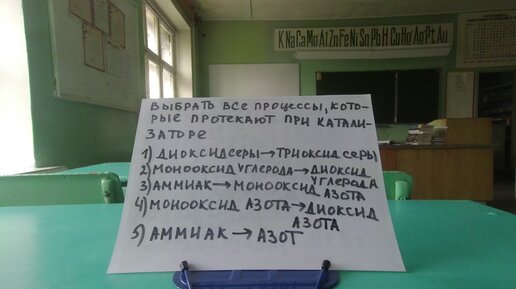 K Na Ca Mg Al Zn Fe Ni Sn Pb H Cu Hg Ag Pt Au
ВЫБРАТЬ ВСЕ ПРОЦЕССЫ, КОТО-
РЫЕ ПРОТЕКАЮТ ПРИ КАТАЛИ-
ЗАТОРЕ
1) ДИОКСИД СЕРЫ → ТРИОКСИД СЕРЫ
2) МОНООКСИД УГЛЕРОДА → ДИОКСИД
УГЛЕРОДА
3) АММИАК → МОНООКСИД АЗОТА
4) МОНООКСИД АЗОТА → ДИОКСИД
АЗОТА
5) АММИАК → АЗОТ